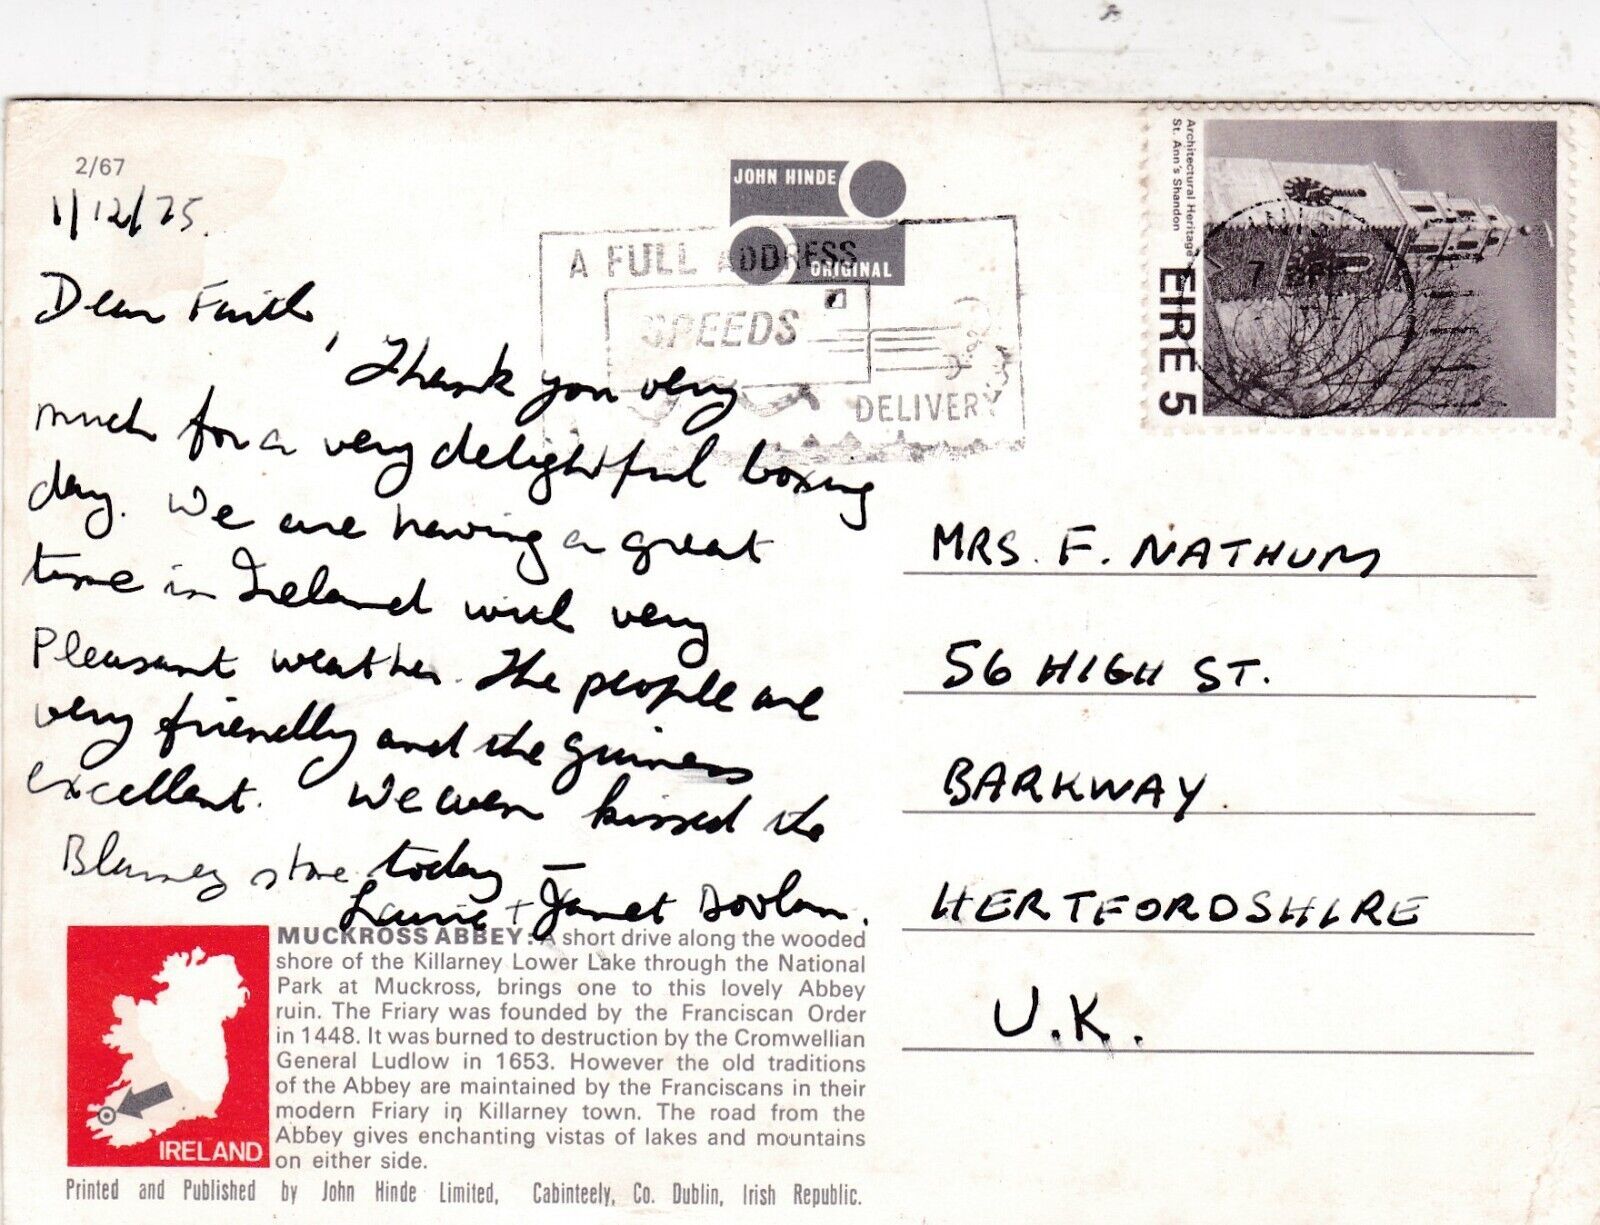 2/67
1/12/75.
Dear Faith,
Thank you very
much for a very delightful boxing
day. We are having a great
time in Ireland with very
Pleasant weather. The people are
very friendly and the guiness
excellent. We even kissed the
Blarney stone today –
Laurie + Janet
JOHN HINDE
ORIGINAL
A FULL ADDRESS
SPEEDS
DELIVERY
Architectural Heritage
St. Ann's Shandon
EIRE 5
MRS. F. NATHUM
56 HIGH ST.
BARKWAY.
HERTFORDSHIRE
U.K.
IRELAND
MUCKROSS ABBEY: A short drive along the wooded
shore of the Killarney Lower Lake through the National
Park at Muckross, brings one to this lovely Abbey
ruin. The Friary was founded by the Franciscan Order
in 1448. It was burned to destruction by the Cromwellian
General Ludlow in 1653. However the old traditions
of the Abbey are maintained by the Franciscans in their
modern Friary in Killarney town. The road from the
Abbey gives enchanting vistas of lakes and mountains
on either side.
Printed and Published by John Hinde Limited, Cabinteely, Co. Dublin, Irish Republic.